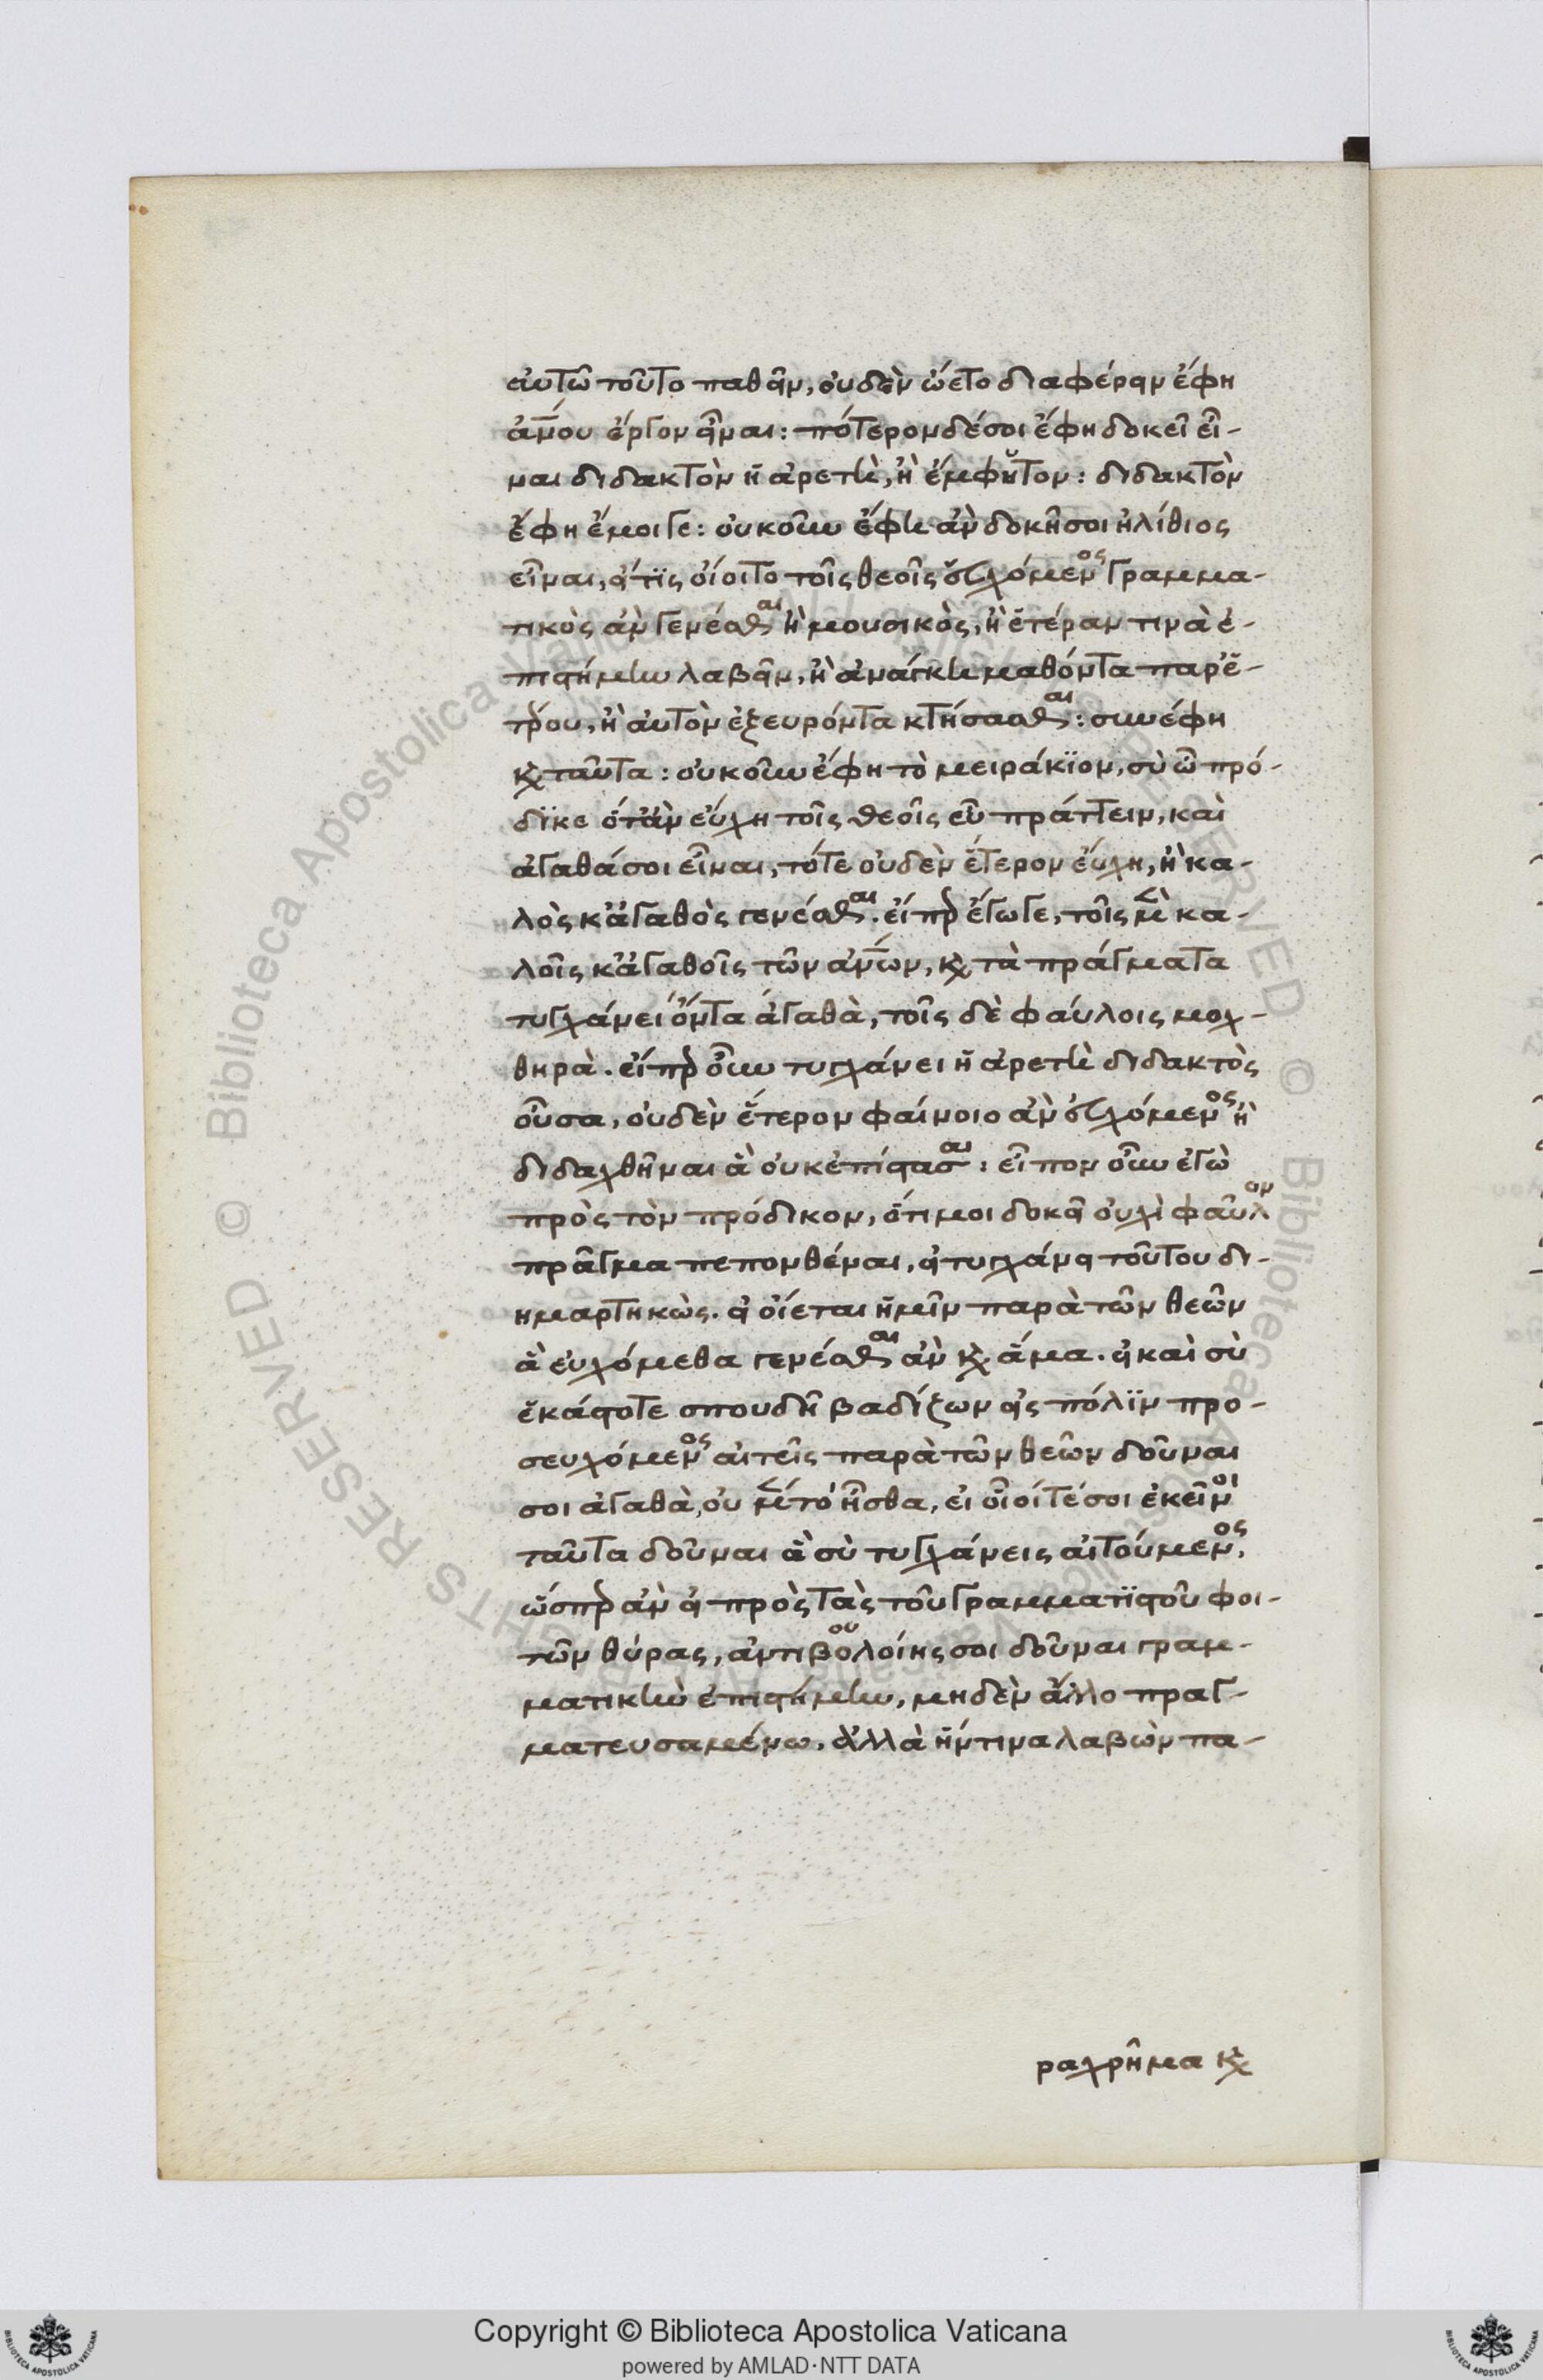 αὐτῶ τοῦτο παθεῖν, οὐδὲν ὤετο διαφέρειν ἔφη
ἀν̅ου ἔργον εἶναι: πότερον δέ σοι ἔφη δοκεῖ εἶ-
ναι διδακτὸν ἡ ἀρετὴ, ἢ ἔμφυτον: διδακτὸν
ἔφη ἔμοιγε: οὐκοῦν ἔφη ἂν δοκῆ σοι ἠλίθιος
εἶναι, εἴ τϊς οἴοιτο τοῖς θεοῖς εὐχόμενος γραμμα-
τικὸς ἂν γενέσθαι ἢ μουσικὸς, ἢ ἑτέραν τινὰ ἐ-
πιστήμην λαβεῖν, ἣ ἀνάγκη μαθόντα παρ' ἑ-
τέρου, ἢ αὐτὸν ἐξευρόντα κτήσασθαι: συνέφη
καὶ ταῦτα: οὐκοῦν ἔφη τὸ μειράκϊον, σὺ ὦ πρό-
δϊκε ὅτἂν εὔχη τοῖς θεοῖς εὖ πράττειν, καὶ
ἀγαθά σοι εἶναι, τότε οὐδὲν ἕτερον εὔχη, ἢ κα-
λὸς κἀγαθὸς γενέσθαι. εἴπερ ἔγωγε, τοῖς μὲν κα-
λοῖς κἀγαθοῖς τῶν ἀν̅ων, καὶ τὰ πράγματα
τυγχάνει ὄντα ἀγαθὰ, τοῖς δὲ φαύλοις μοχ-
θηρὰ. εἴπερ οὖν τυγχάνει ἡ ἀρετὴ διδακτὸς
οὖσα, οὐδὲν ἕτερον φαίνοιο ἂν εὐχόμενος ἢ
διδαχθῆναι ἃ οὐκ ἐπίστασαι: εἶπον οὖν ἐγὼ
πρὸς τὸν πρόδικον, ὅτι μοι δοκεῖ οὐχὶ φαῦλον
πρᾶγμα πεπονθέναι, εἰ τυγχάνει τούτου δι-
ημαρτηκὼς. εἰ οἴεται ἡμῖν παρὰ τῶν θεῶν
ἃ εὐχόμεθα γενέσθαι ἂν καὶ ἅμα. εἰ καὶ σὺ
ἑκάστοτε σπουδῆ βαδίζων εἰς πόλϊν προ-
σευχόμενος αἰτεῖς παρὰ τῶν θεῶν δοῦναι
σοι ἀγαθὰ, οὐ μέντο' ἦσθα, εἰ οἷοί τέ σοι ἐκεῖνοι
ταῦτα δοῦναι ἃ σὺ τυγχάνεις αἰτούμενος,
ὥσπερ ἂν εἰ πρὸς τὰς τοῦ γραμματϊστοῦ φοι-
τῶν θύρας, ἀντιβολοίης σοι δοῦναι γραμ-
ματικὴν ἐπιστήμην, μηδὲν ἄλλο πραγ-
ματευσαμένω, ἀλλὰ ἥντινα λαβὼν πα-
ραχρῆμα καὶ
© Biblioteca Apostolica Vaticana
Copyright © Biblioteca Apostolica Vaticana
powered by AMLAD·NTT DATA